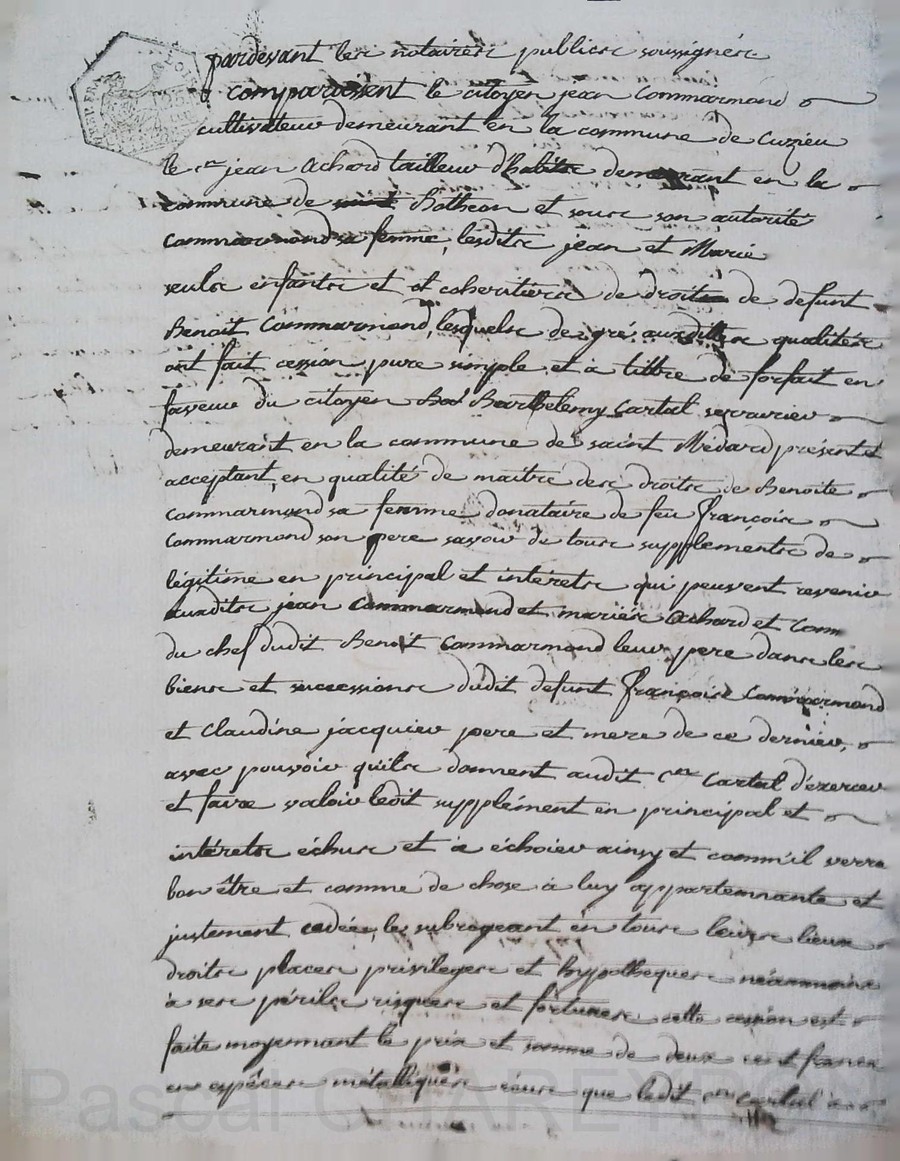 pardevant les notaires publics soussignés
comparaissent le citoyen jean Commarmond
cultivateur demeurant en la commune de Cuzieu
le cen jean Achard tailleur d'habits demeurant en la
commune de Botheon et sous son autorité
Commarmond sa femme, lesdits jean et Marie
seuls enfants et et coheritiers de droits de defunt
Benoit Commarmond, lesquels de gré auxdittes qualités
ont fait cession pure simple et a tittre de forfait en
faveur du citoyen Barthelemy Cartal serrurier
demeurant en la commune de saint Médard présent et
acceptant, en qualité de maitre des droits de Benoite
Commarmond sa femme donataire de feu françois
Commarmond son pere savoir de tous supplements de
légitime en principal et intérets qui peuvent revenir
auxdits jean Commarmond et mariés Achard et Comm
du chef dudit Benoit Commarmond leur pere dans les
biens et successions dudit defunt françois Commarmond
et Claudine jacquier pere et mere de ce dernier,
avec pouvoir quils donnent audit cen Cartal d'éxercer
et faire valoir ledit supplément en principal et
intérets échus et a échoier ainsy et comm'il verra
bon être et comme de chose à luy appartennante et
justement cedée, le subrogeant en tous leurs lieux
droits places privileges et hypotheques néammoins
à ses périls risques et fortunes, cette cession est
faite moyennant le prix et somme de deux cent francs
en espéces métalliques écus que ledit cen Cartal a
Pascal CHAREYRON